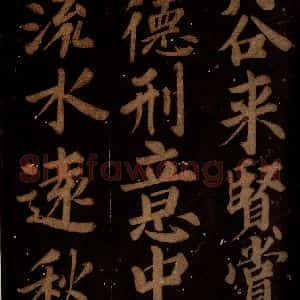 谷来賢賞
德刑意中
流水速秋
Shufawang.cn